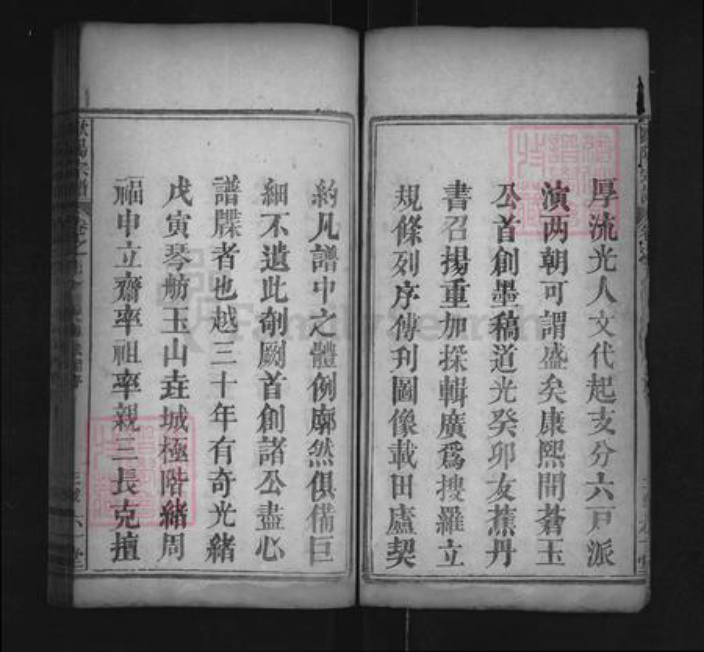 厚流光人文代起支分六戸派
演两朝可謂盛矣康熙間蒼玉
公首創墨稿道光癸卯友蕉丹
書召揚重加採輯廣爲搜羅立
規條列序傳刋圖像載田廬契
約凡譜中之體例廓然俱備巨
細不遺此剏厥首創諸公盡心
譜牒者也越三十年有奇光緒
戊寅琴舫玉山垚城極階緒周
福申立齋率祖率親三長克擅
歐陽宗譜
六一堂
FamilySearch